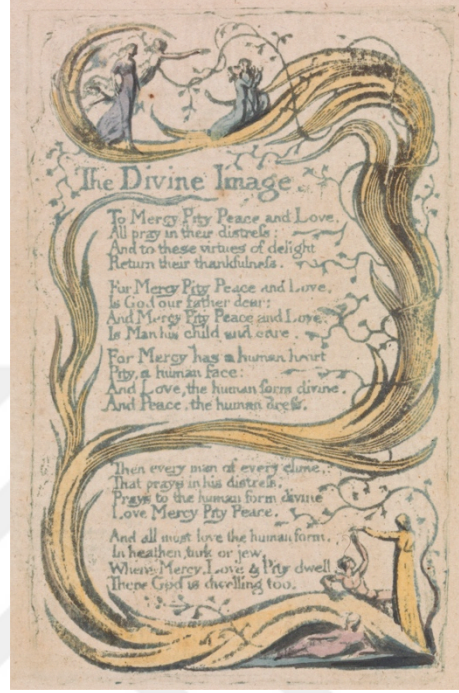 The Divine Image
To Mercy Pity Peace and Love,
All pray in their distrefs:
And to these virtues of delight
Return their thankfulnefs.
For Mercy Pity Peace and Love,
Is God our father dear:
And Mercy Pity Peace and Love,
Is Man his child and care.
For Mercy has a human heart
Pity, a human face:
And Love, the human form divine,
And Peace, the human drefs.
Then every man of every clime,
That prays in his distrefs,
Prays to the human form divine
Love Mercy Pity Peace.
And all must love the human form,
In heathen, turk or jew,
Where Mercy, Love & Pity dwell,
There God is dwelling too.